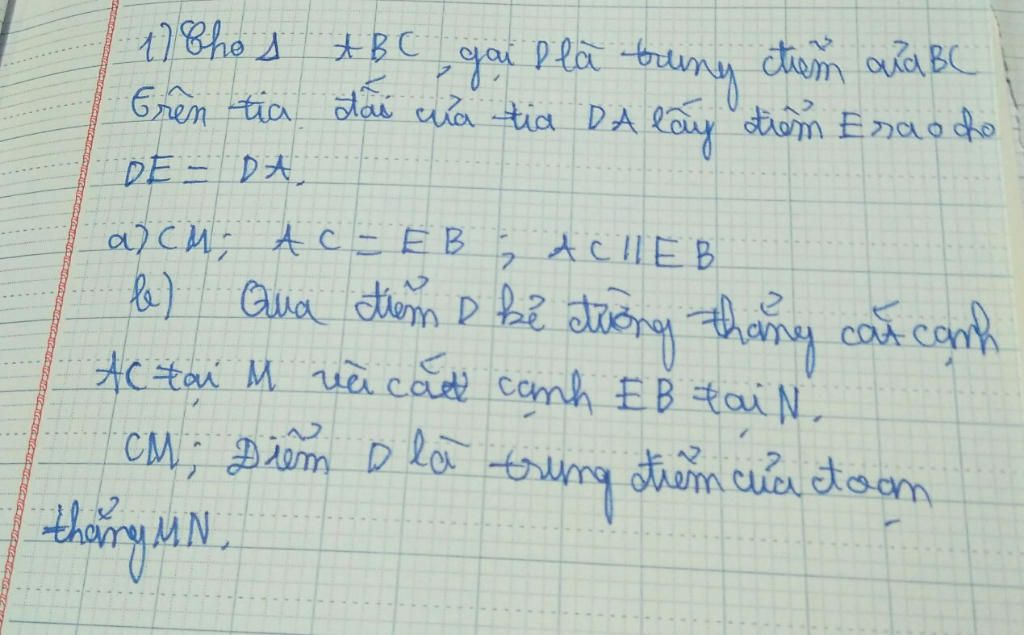 1) Cho Δ ABC, gọi D là trung điểm của BC
Trên tia đối của tia DA lấy điểm E sao cho
DE = DA.
a) CM; AC = EB ; AC // EB
b) Qua điểm D kẻ đường thẳng cắt cạnh
AC tại M và cắt cạnh EB tại N.
CM; Điểm D là trung điểm của đoạn
thẳng MN.